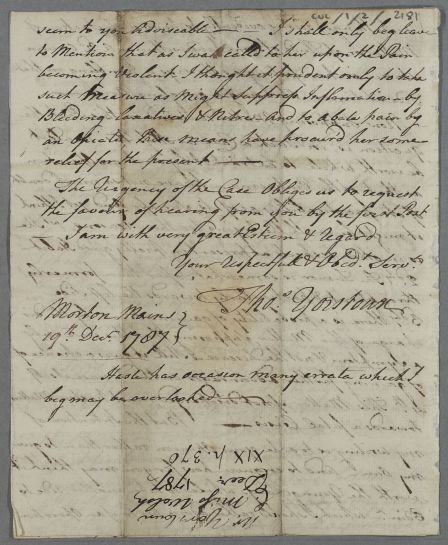 CUL/1/2/2181
seem to you adviseable — I shall only beg leave
to Mention that as I was called to her upon the Pain
becoming Violent I thought it prudent only to take
such measures as might suppress Inflammation by
Bleeding laxatives & Nitre and to abate pain by
an opiate these means have procured her some
relief for the present —
The Urgency of the Case Obliges us to request
the favour of hearing from you by the first Post
I am with very great Esteem & Regard
Your Respectful & Obedt. Servt.
Thos. Yorstoun
Morton Mains
19th Decr. 1787
Haste has occasion many errata which I
beg may be overlooked
Mr Yorstoun
Miss Welsh
Decr. 1787
XIX p. 376